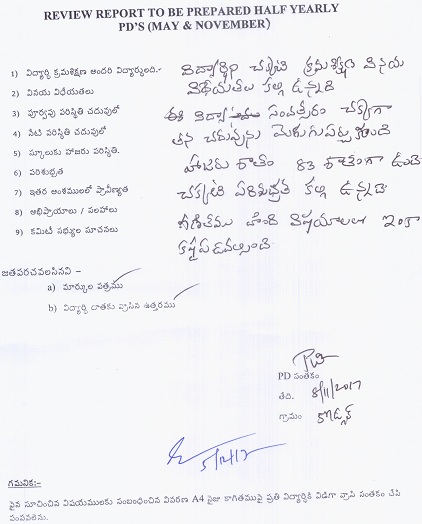 REVIEW REPORT TO BE PREPARED HALF YEARLY
PD'S (MAY & NOVEMBER)
1) విద్యార్థి క్రమశిక్షణ అందరి విద్యార్థులది.-
విద్యార్థిని చక్కటి క్రమశిక్షణ వినయ
2) వినయ విధేయతలు
విధేయతలు కల్గి ఉన్నది
3) పూర్వపు పరిస్థితి చదువులో
ఈ విద్యా సంవత్సరం చక్కగా
4) నేటి పరిస్థితి చదువులో
తన చదువును మెరుగుపర్చుకుంది
5) స్కూలుకు హాజరు పరిస్థితి.
హాజరు శాతం 83 శాతంగా ఉంది
6) పరిశుభ్రత
7) ఇతర అంశములలో ప్రావీణ్యత
చక్కటి పరిశుభ్రత కల్గి ఉన్నది
8) అభిప్రాయాలు / సలహాలు
గణితము హింది విషయాలలో ఇంకా
9) కమిటీ సభ్యుల సూచనలు
కష్టపడవల్సింది
జతపరచవలసినవి :-
a) మార్కుల పత్రము
b) విద్యార్థి దాతకు వ్రాసిన ఉత్తరము
PD సంతకం
తేది. 8/11/2017
గ్రామం
5/12/17
గమనిక:-
పైన సూచించిన విషయములకు సంబంధించిన వివరణ A4 సైజు కాగితముపై ప్రతి విద్యార్థికి విడిగా వ్రాసి సంతకం చేసి
పంపవలెను.